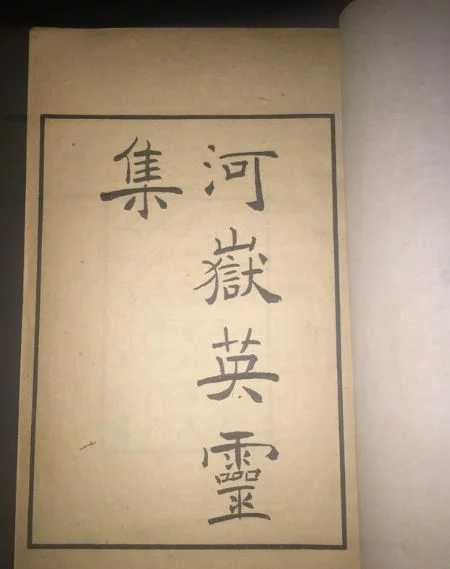 河嶽英靈
集